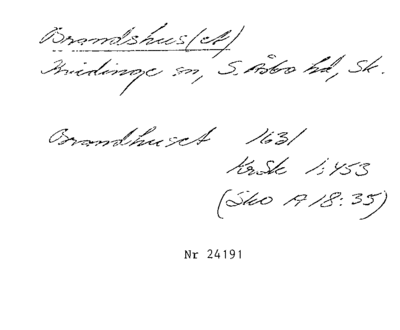 Brandshus(et)
Kvidinge sn, S. Åsbo hd, Sk.
Brandhuset 1631
KrSk 1:453
(Sko A 18:35)
Nr 24191